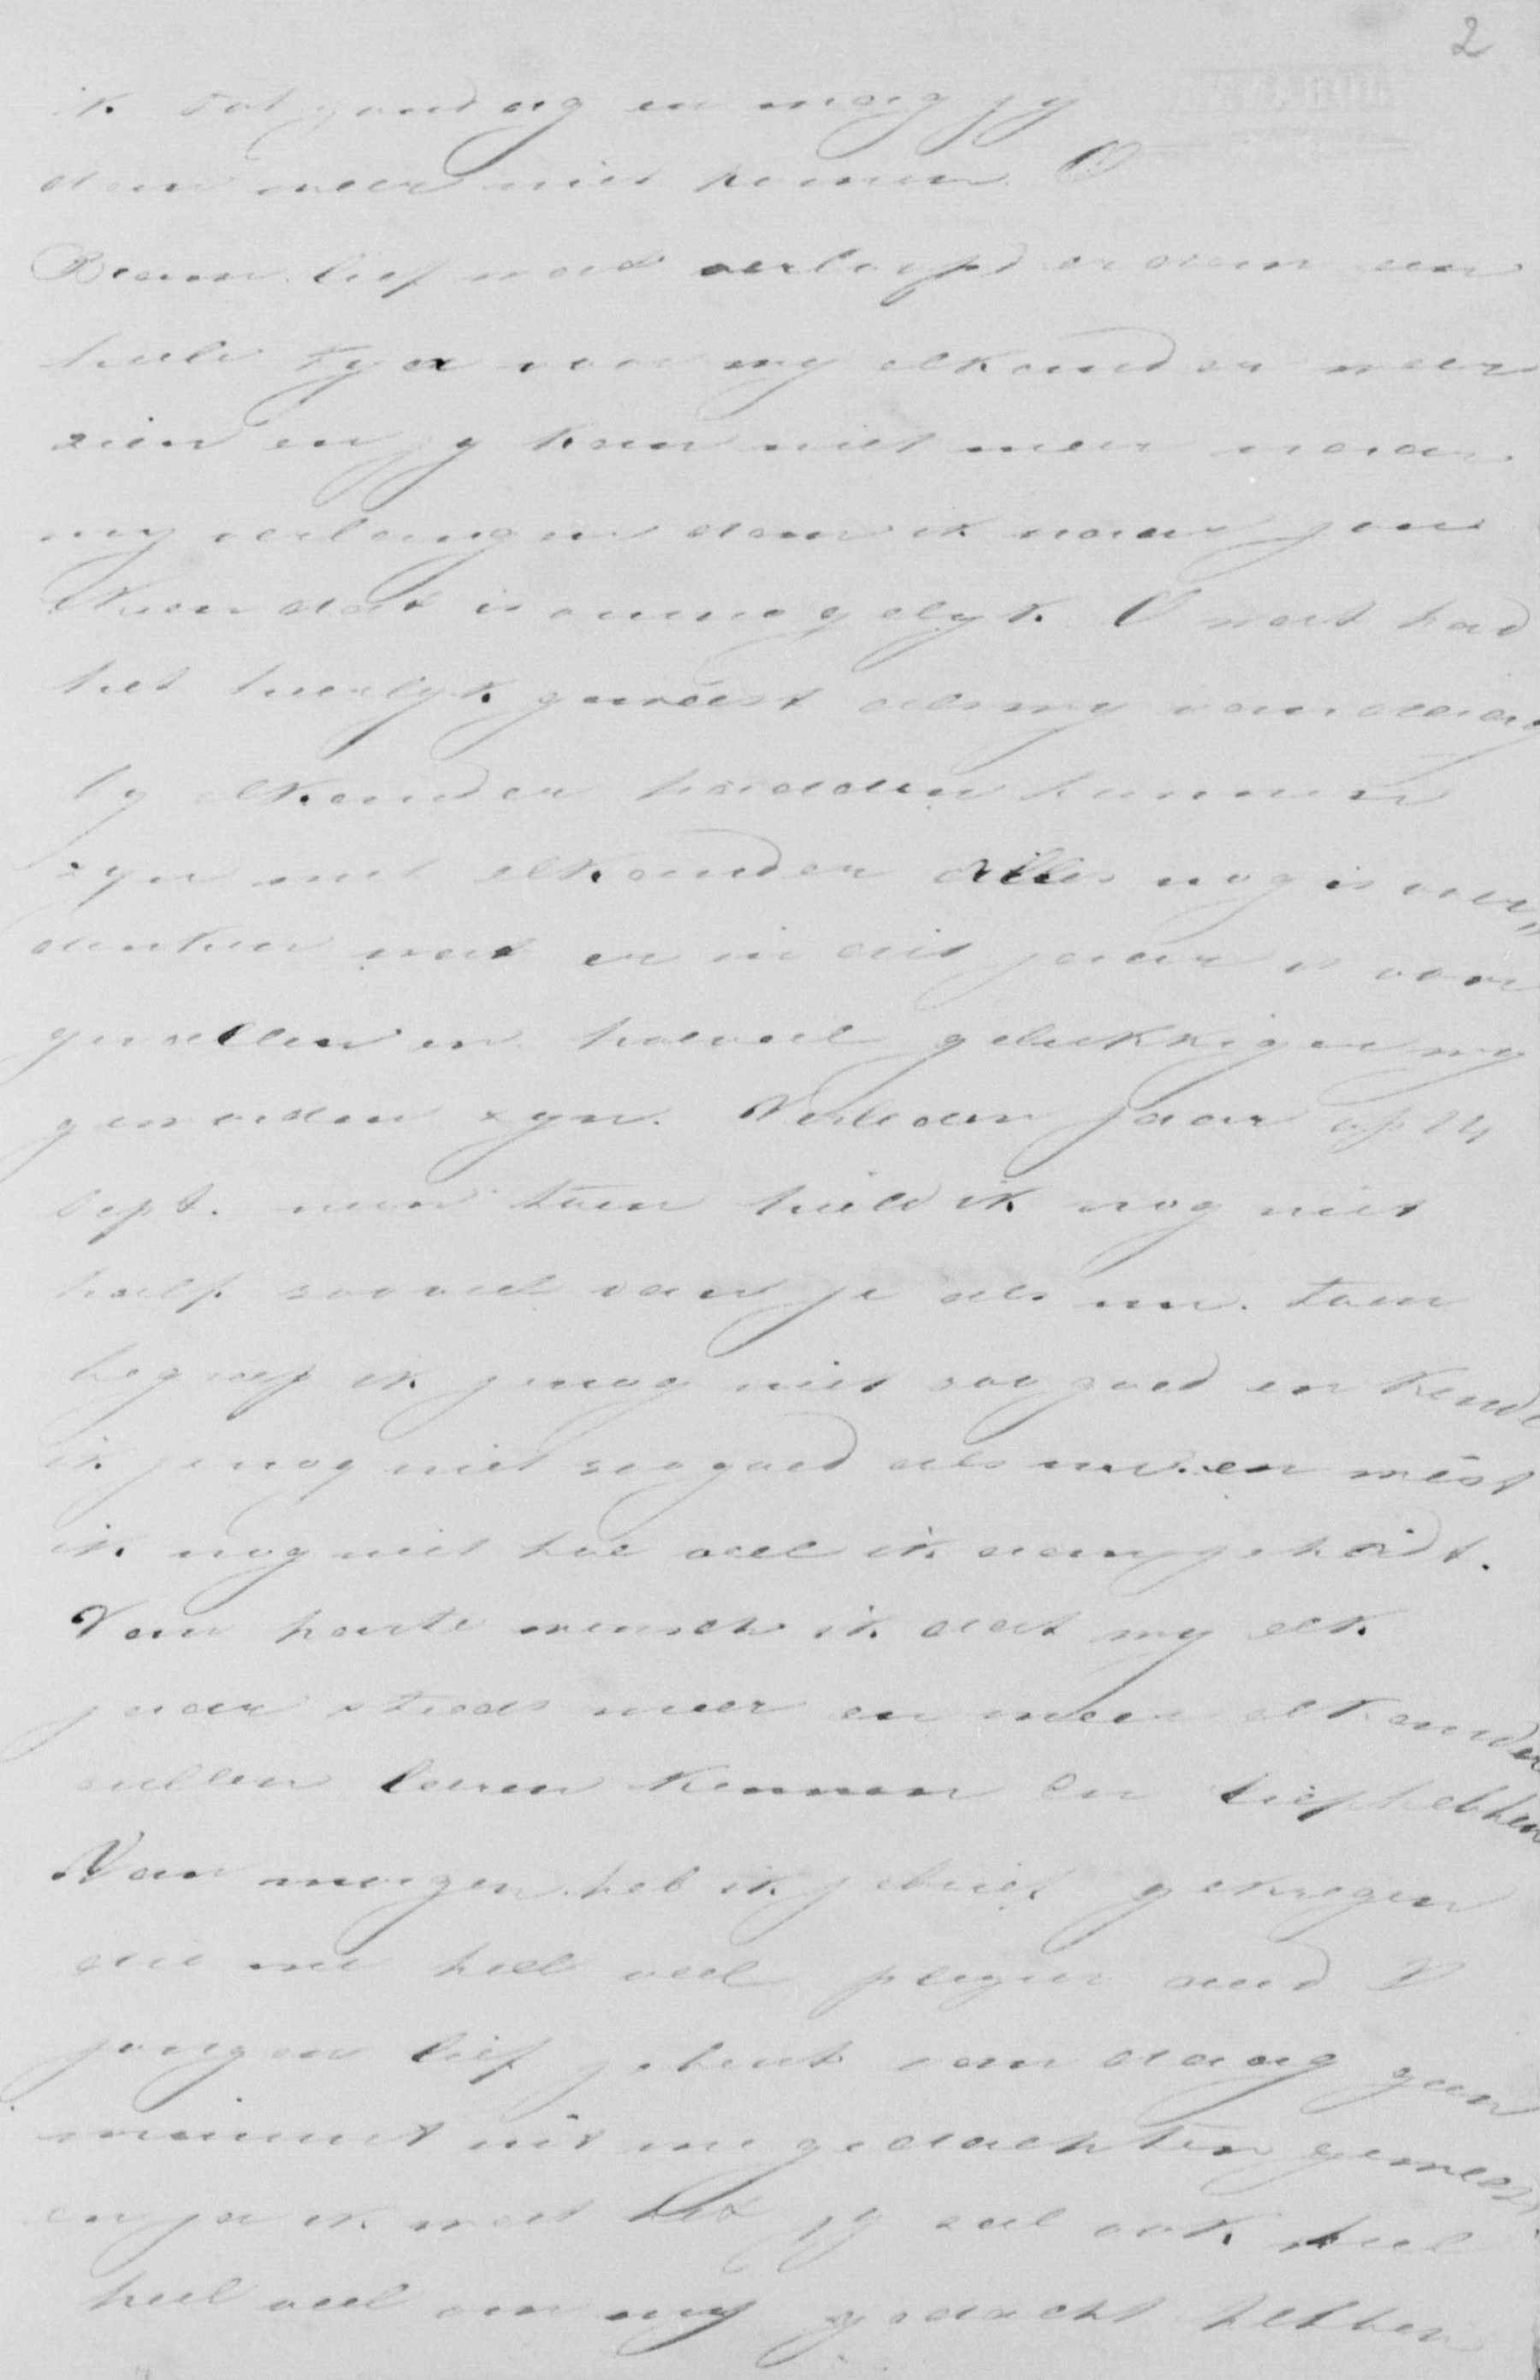 2
ik tot zondag en mag jy
dan weer niet komen. O
Bram lief wat verloopt er dan een
heele tyd voor wy elkander weer
zien en jy kan niet meer naar
my verlangen dan ik naar jou
Neen dat is onmogelyk. O wat had
het heerlyk geweest als wy vandaag
by elkander hadden kunnen
zyn met elkander alles nog is over„
denken wat er in dit jaar is voor
gevallen en hoeveel gelukkiger wy
geworden zyn. Verleden jaar op 14
Sept. neen toen hield ik nog niet
half zooveel van je als nu. toen
begreep ik je nog niet zoo goed en kende
ik je nog niet zoo goed als nu. en wist
ik nog niet hoe veel ik aan je hadt.
Van harte wensch ik dat wy elk
jaar steeds meer en meer elkander
zullen leeren kennen en liefhebben
Van morgen heb ik je brief gekregen
die me heel veel plezier deed O
jongen lief je bent van daag geen
minuut uit me gedachten geweest
en ja ik weet het jy zal ook heel
heel veel om my gedacht hebben